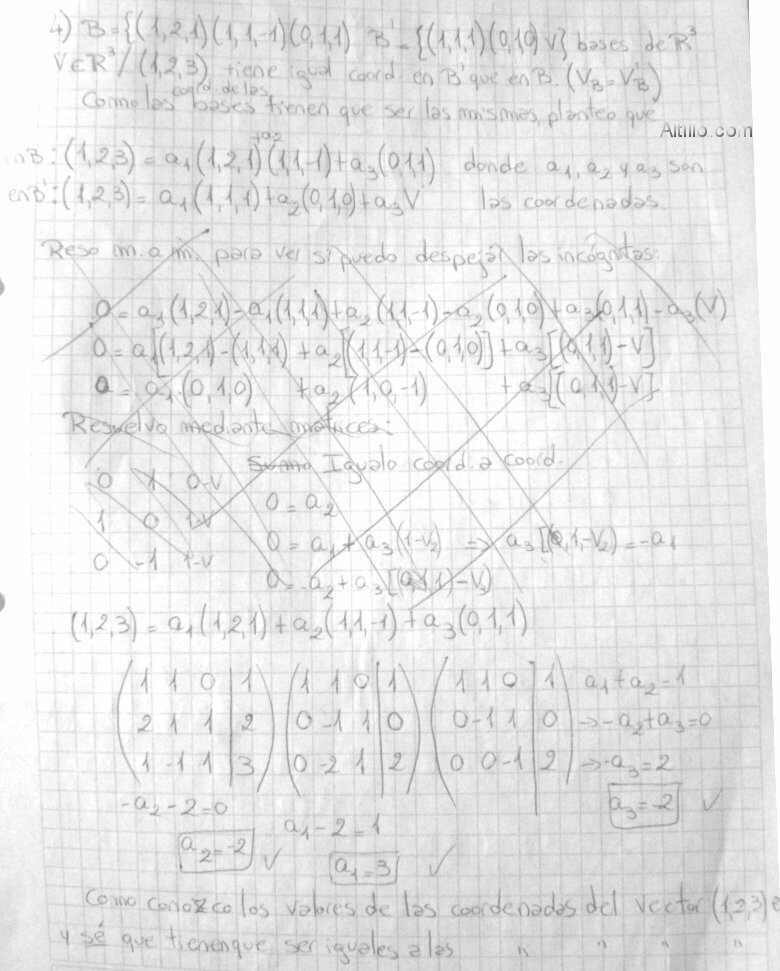 4) B={(1,2,1)(1,1,-1)(0,1,1) B'={(1,1,1)(0,1,0)V} bases de R³
V∈R³/(1,2,3) tiene igual coord en B' que en B. (V_B=V_B')
coord. de las
Como las bases tienen que ser las mismas, planteo que
Altillo.com
+a₂
en B: (1,2,3) = a₁(1,2,1)(1,1,-1)+a₃(0,1,1) donde a₁, a₂ y a₃ son
en B': (1,2,3) = a₁(1,1,1)+a₂(0,1,0)+a₃V las coordenadas.
Resto m. a m. para ver si puedo despejar las incógnitas:
0 = a₁(1,2,1)-a₁(1,1,1)+a₂(1,1,-1)-a₂(0,1,0)+a₃(0,1,1)-a₃(V)
0 = a₁[(1,2,1)-(1,1,1)+a₂[(1,1-1)-(0,1,0)]+a₃[(0,1,1)-V]
0 = a₁(0,1,0) +a₂(1,0,-1) +a₃[(0,1,1)-V]
Resuelvo mediante matrices:
Sumo Igualo coord. a coord.
0 1 0-V
0 = a₂
1 0 1-V
0 = a₁+a₃(1-V₂) ⇒ a₃[(0,1,-V₂)=-a₁
0 -1 1-V
0=-a₂+a₃[(0,1,1)-V₃)
(1,2,3) = a₁(1,2,1)+a₂(1,1,-1)+a₃(0,1,1)
(1 1 0 | 1) (1 1 0 | 1) (1 1 0 | 1) a₁+a₂-1
(2 1 1 | 2) (0 -1 1 | 0) (0 -1 1 | 0) → -a₂+a₃=0
(1 -1 1 | 3) (0 -2 1 | 2) (0 0 -1 | 2) → -a₃=2
-a₂-2=0 a₃=-2 ✓
a₁-2=1
a₂=-2 ✓ a₁=3 ✓
Como conozco los valores de las coordenadas del vector (1,2,3) e
y sé que tienen que ser iguales a las " " " "